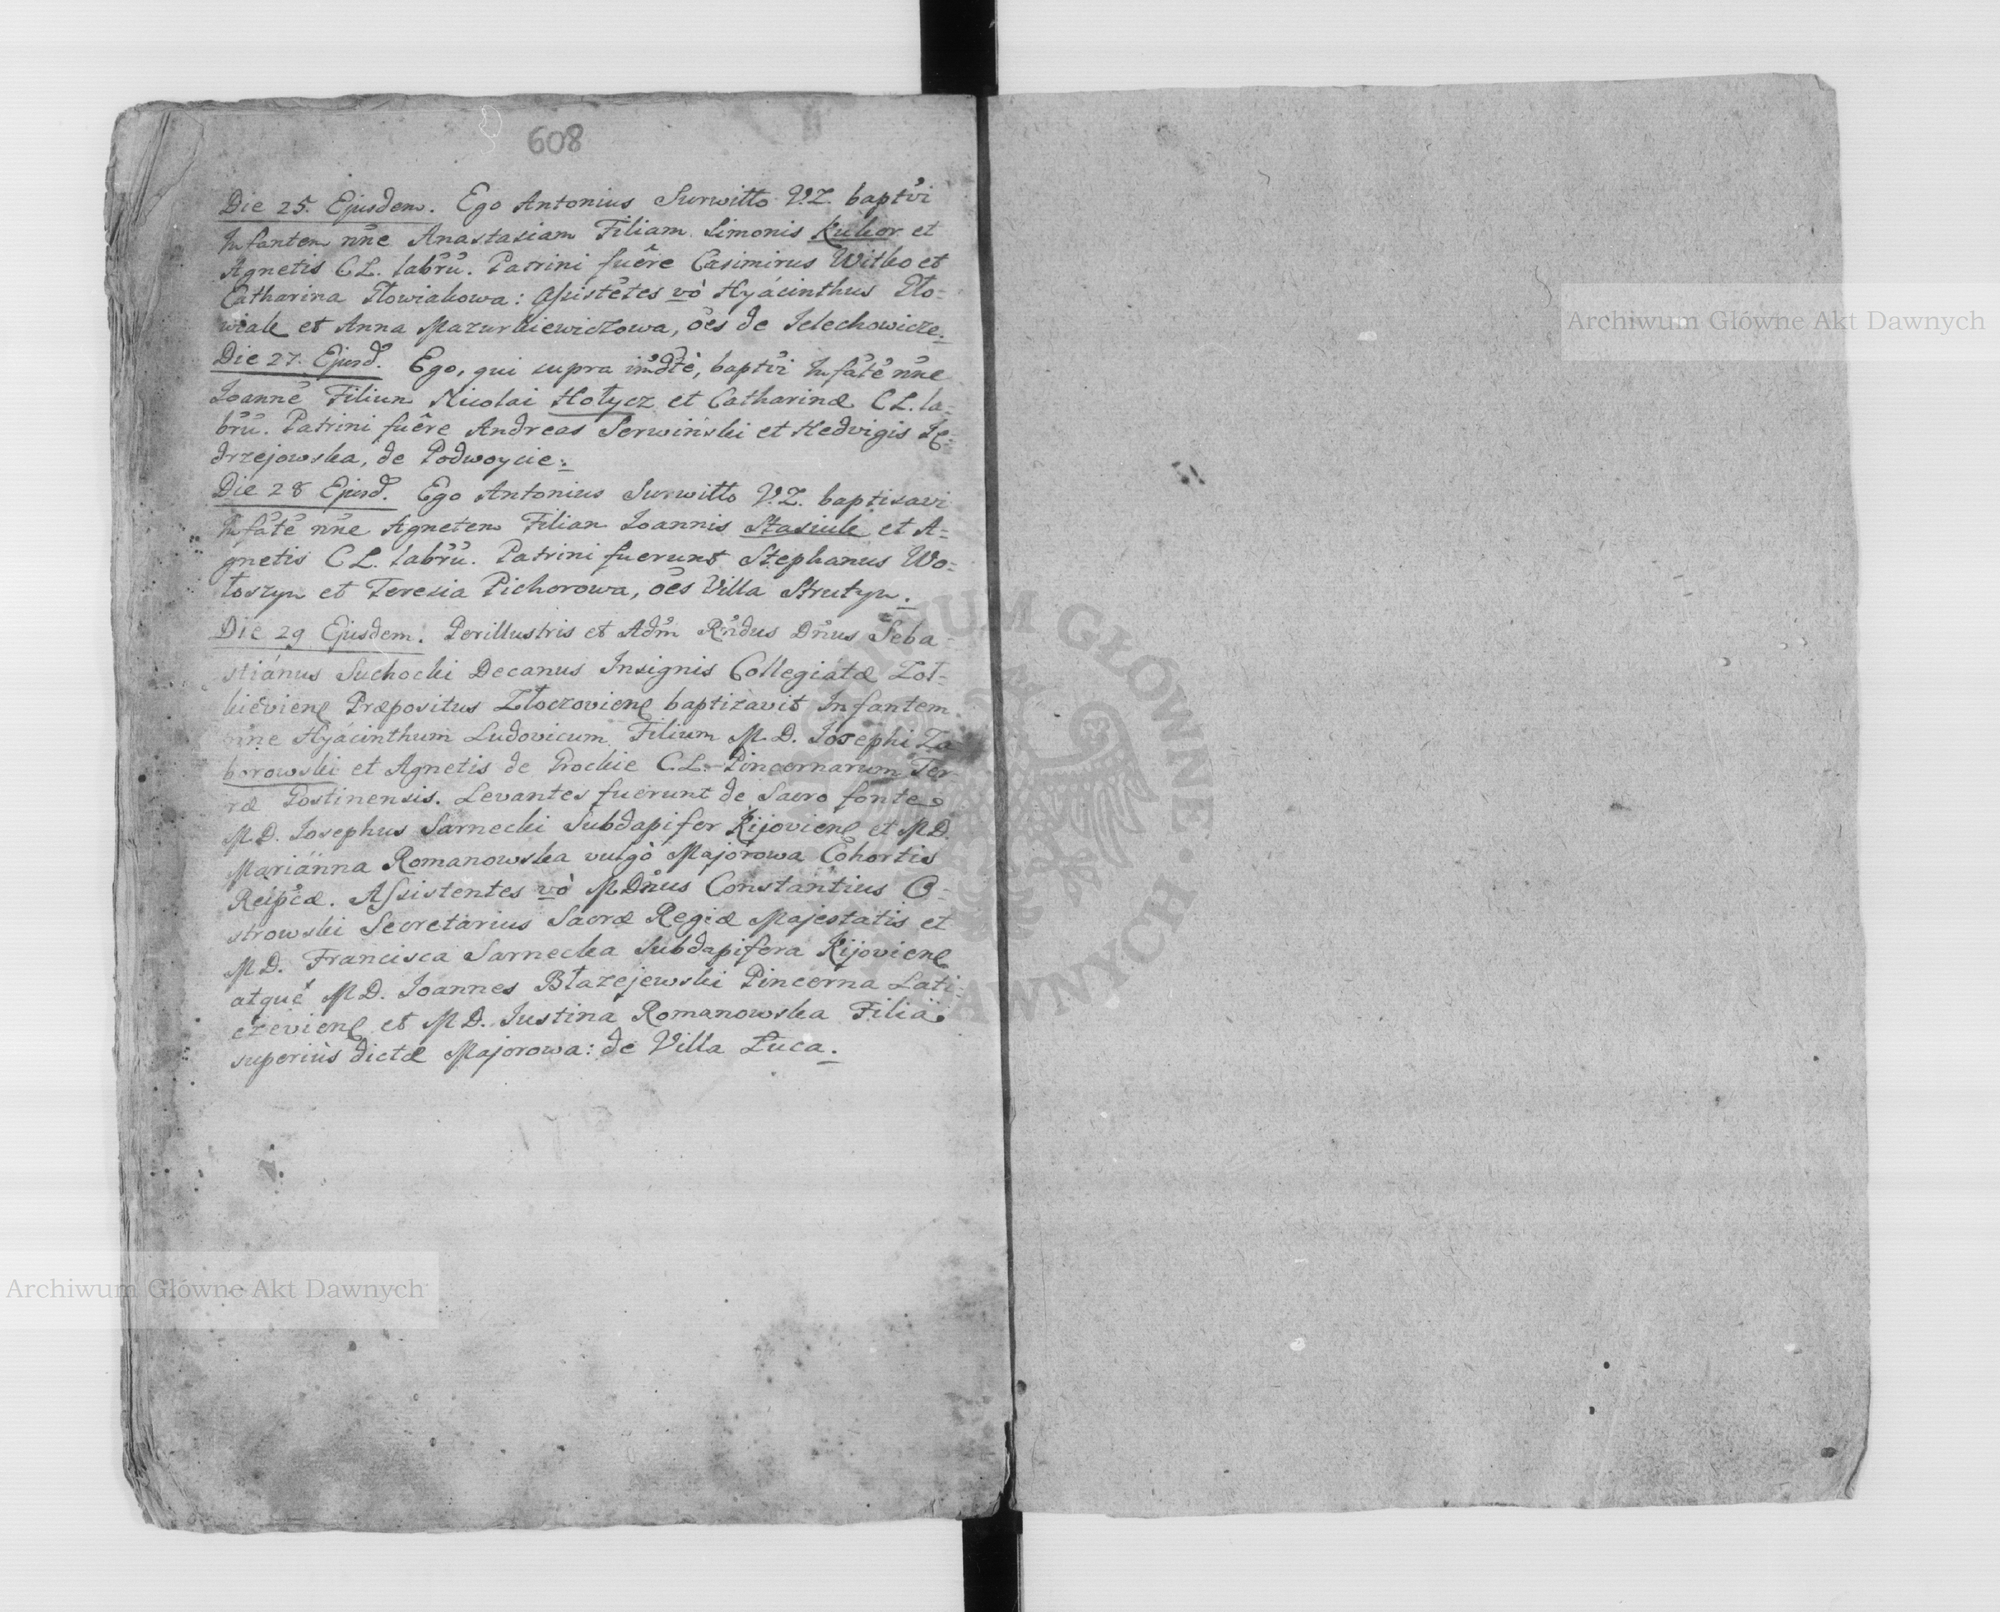 608
Die 25. Ejusdem. Ego Antonius Surwiłło V.Z. baptvi
Infantem nne Anastasiam Filiam Simonis Kukor et
Agnetis CL. labru. Patrini fuêre Casimirus Witko et
Catharina Słowiakowa: Assistetes vò Hyácinthus Sło-
wiak et Anna Mazurkiewiczowa, oes de Jelechowice.
Die 27. Ejusd. Ego, qui supra imdtè, baptvi Infate nne
Joanne Filium Nicolai Hołycz et Catharinæ CL. la-
bru. Patrini fuêre Andreas Serwiński et Hedvigis Ję-
drzejowska, de Podwoycie.
Die 28 Ejusd. Ego Antonius Surwiłło V.Z. baptisavi
Infate nne Agnetem Filiam Joannis Stasiuk et A-
gnetis CL. labru. Patrini fuerunt Stephanus Wo-
łoszyn et Teresia Pichorowa, oes Villa Strutyn.
Die 29 Ejusdem. Perillustris et Adm Rndus Dnus Seba-
stiánus Suchocki Decanus Insignis Collegiatæ Zoł-
kieviens Præpositus Złoczoviens baptizavit Infantem
nine Hyácinthum Ludovicum Filium M.D. Josephi Za
borowski et Agnetis de Grockie C.L. Pincernarum Ter-
ræ Gostinensis. Levantes fuerunt de Sacro fonte
M.D. Josephus Sarnecki Subdapifer Kijoviens et M.D.
Mariánna Romanowska vulgò Majorowa Cohortis
Reipcæ. Assistentes vò M.Dnus Constantius O-
strowski Secretarius Sacræ Regiæ Majestatis et
M.D. Francisca Sarnecka Subdapifera Kijoviens
atque M.D. Joannes Błazejewski Pincerna Lati-
czeviens et M.D. Justina Romanowska Filia
superiùs dictæ Majorowa: de Villa Łuca.
Archiwum Główne Akt Dawnych
Archiwum Główne Akt Dawnych
ARCHIWUM GŁÓWNE AKT DAWNYCH